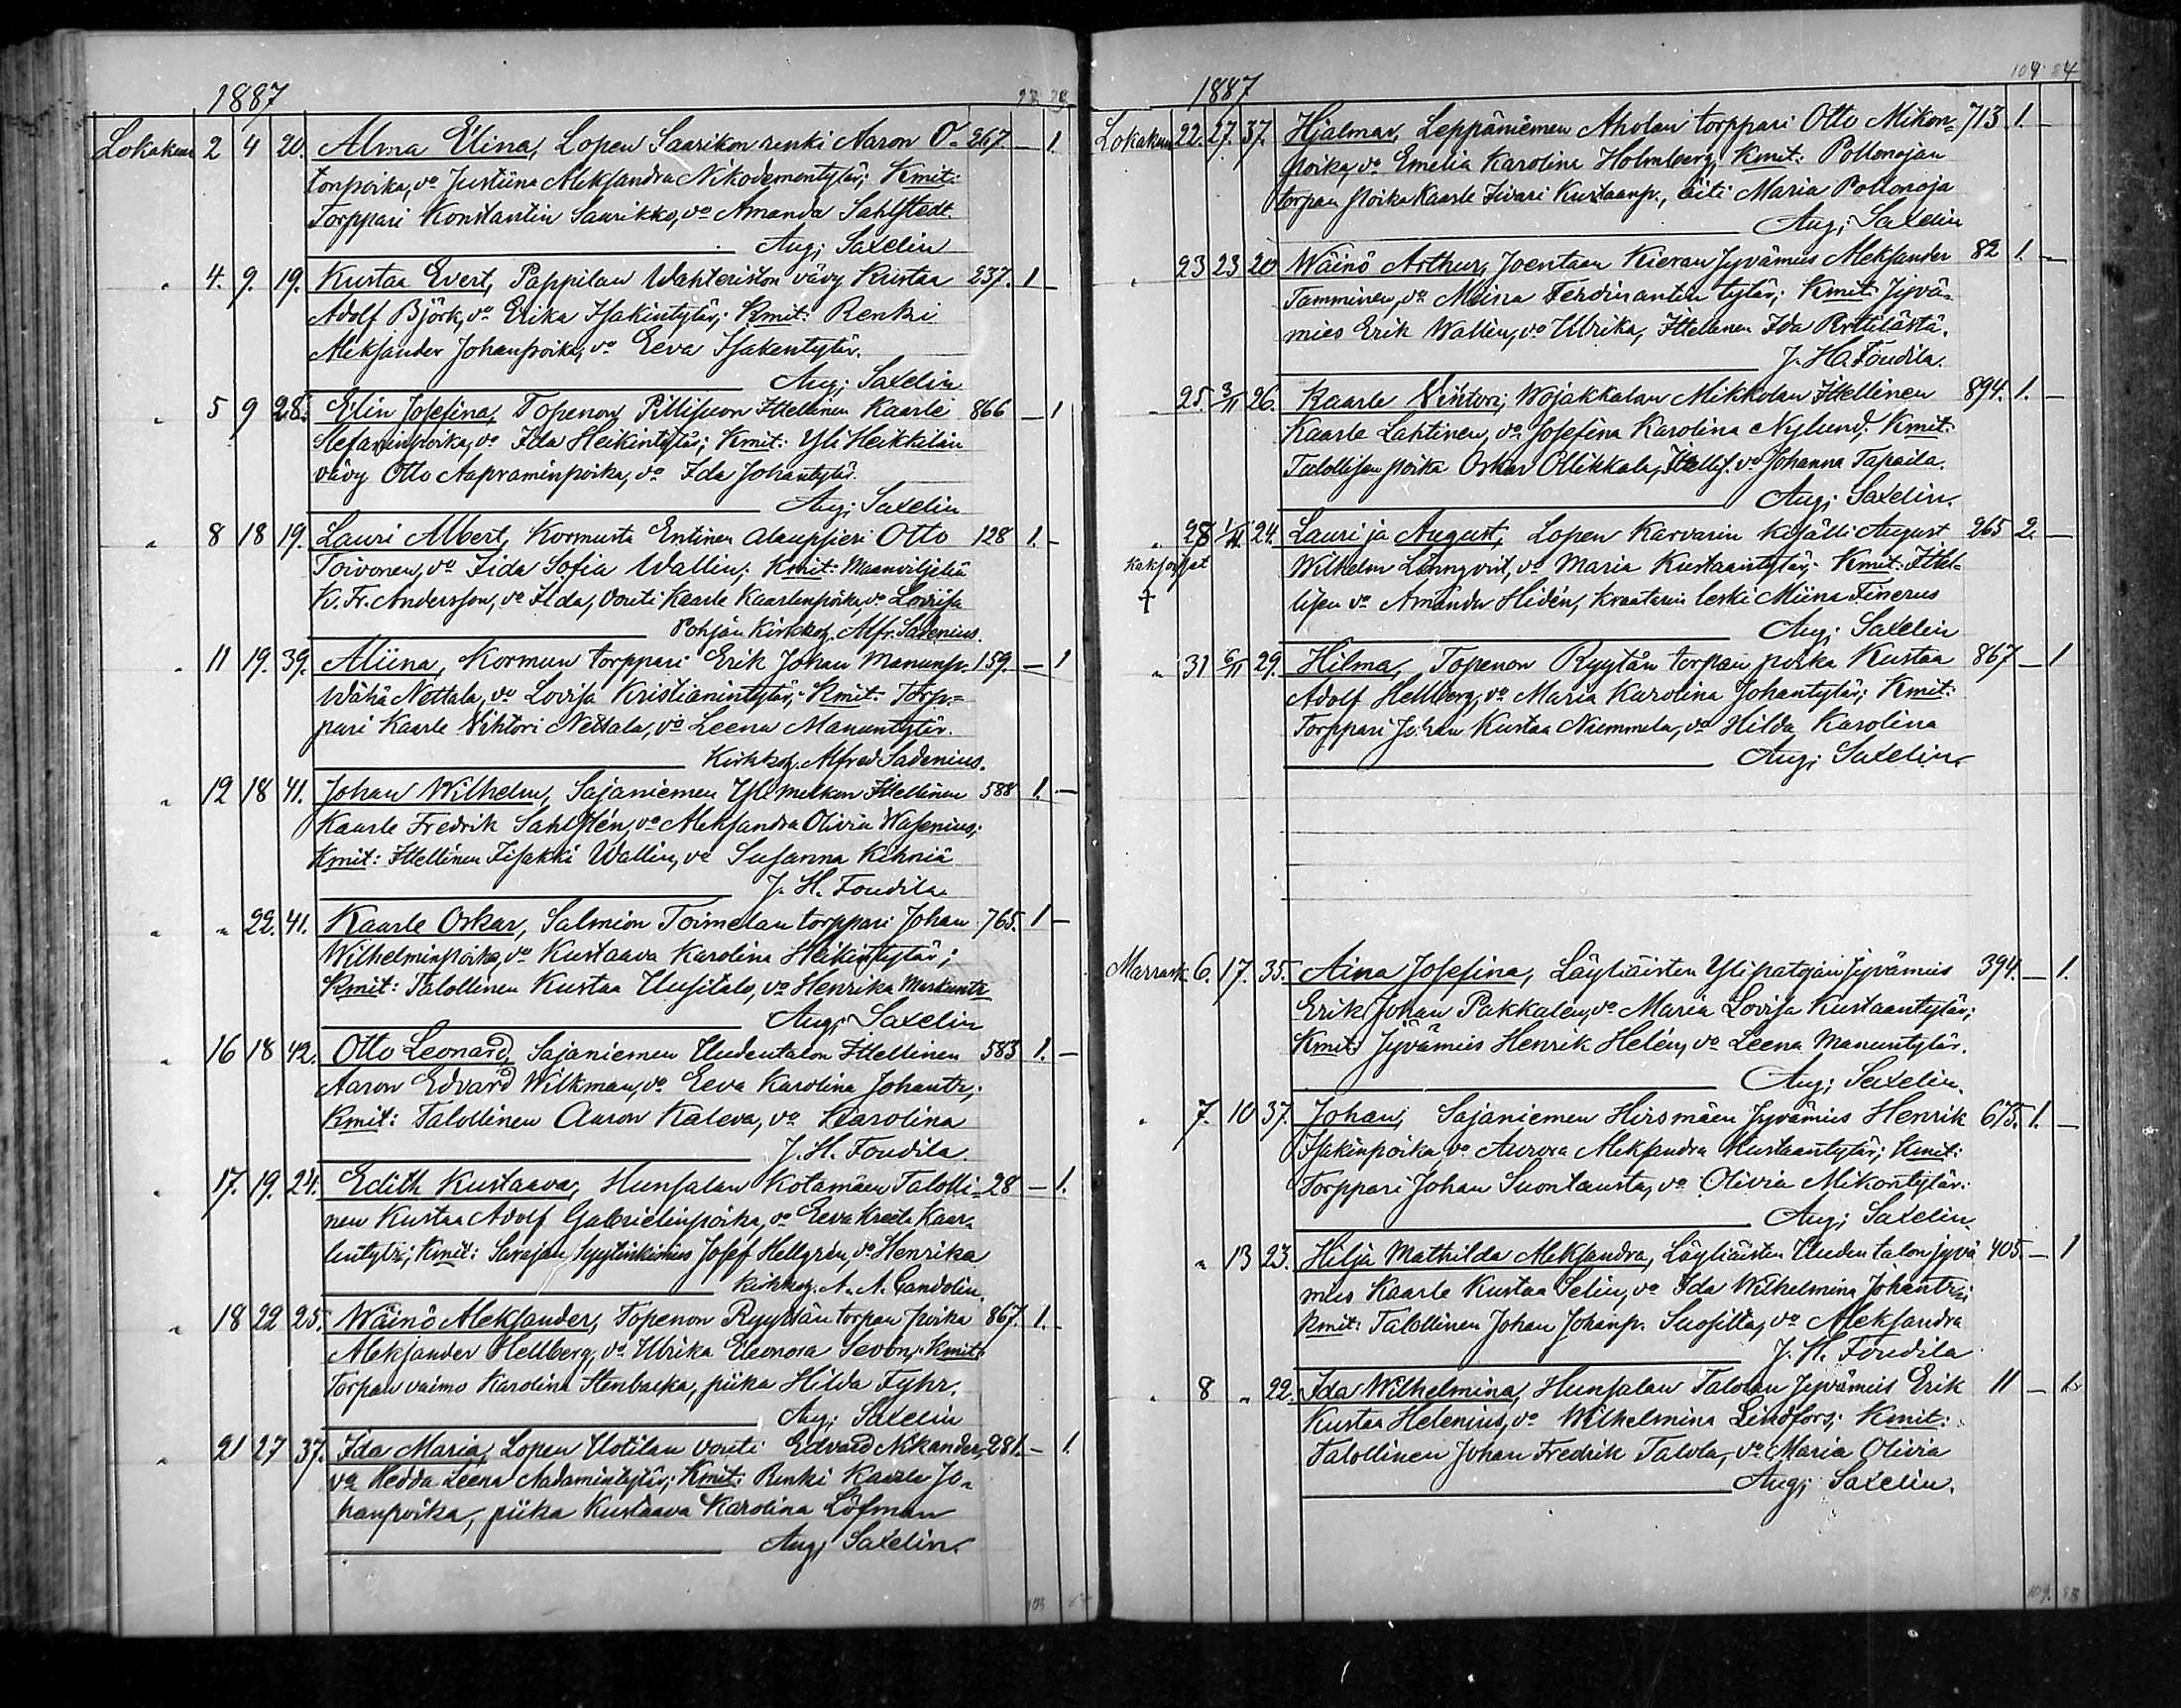 1887
Lokakuu 2 4 20. Alma Elina, Lopen Saarikon renki Aaron O- 267 — 1.
tonpoika, vo Justiina Aleksandra Nikodementytär; Kmit:
Torppari Konstantin Saarikko, vo Amanda Sahlstedt
Aug; Saxelin
" 4. 9. 19. Kustaa Evert, Pappilan Wahteriston vävy Kustaa 237. 1 —
Adolf Björk, vo Erika Isakintytär; Kmit: Renki
Aleksander Johanpoika, vo Eeva Isakentytär.
Aug; Saxelin
" 5 9 28. Elin Josefina, Topenon Pillisuon Ittellinen Kaarle 866 — 1
Stefaninpoika, vo Ida Heikintytär; Kmit: Yli Heikkilän
vävy Otto Aapraminpoika, vo Ida Johantytär.
Aug; Saxelin
" 8 18 19. Lauri Albert, Kormusta Entinen Alaupsieri Otto 128 1. —
Toivonen, vo Iida Sofia Wallin; Kmit: Maanviljeliä
K. Fr. Andersson, vo Ilda, Vouti Kaarle Kaarlenpoika, vo Lovisa
Pohjan Kirkkoh. Alfr. Sadenius.
" 11 19. 39. Miina, Kormun torppari Erik Johan Manunp. 159. — 1
Wähä Nottala, vo Lovisa Kristianintytär; Kmit: Torp-
pari Kaarle Viktori Nottala, vo Leena Manuntytär.
Kirkkoh. Alfred Sadenius.
" 12 18 41. Johan Wilhelm, Sajaniemen Ittellinen 588 1. —
Kaarle Fredrik Sahlstén, vo Aleksandra Olivia Wasenius;
Kmit: Ittellinen Iisakki Wallin, vo Susanna Kihniä
J. H. Foudila
" " 22. 41. Kaarle Oskar, Salmion Toimelan torppari Johan 765. 1 —
Wilhelminpoika, vo Kustaava Karolina Heikintytär;
Kmit: Talollinen Kustaa Uusitalo, vo Henrika Markuntr
Aug; Saxelin
" 16 18 42. Otto Leonard, Sajaniemen Uudentalon Ittellinen 583 1. —
Aaron Edvard Wilkman, vo Eeva Karolina Johantr;
Kmit: Talollinen Aaron Kaleva, vo Karolina
J. H. Foudila
" 17. 19. 24. Edith Kustaava, Hunsalan Kotamäen Talolli- 28 — 1.
nen Kustaa Adolf Gabrielinpoika, vo Eeva Kreeta Kaar-
lentytr; Kmit: Josef Hellgrén, vo Henrika
Kirkkoh. A. A. Gandolin.
" 18 22 25. Wäinö Aleksander, Topenon Ryytän torpan poika 867. 1. —
Aleksander Hellberg, vo Ulrika Eleonora Sevon; Kmit:
Torpan vaimo Karolina Stenbacka, piika Hilda Fyhr.
Aug; Saxelin
" 21 27 37. Ida Maria, Lopen Uotilan vouti Edvard Nikander, 281. — 1.
vo Hedda Leena Aadamintytär; Kmit: Renki Kaarle Jo-
hanpoika, piika Kustaava Karolina Löfman
Aug; Saxelin.
1887
Lokakuu 22. 27. 37. Hjalmar, Leppäniemen Aholan torppari Otto Mikon- 713 1. —
poika, vo Emelia Karolina Holmberg; Kmit: Pollonojan
torpan poika Kaarle Iivari Kustaanp., äiti Maria Pollonoja
Aug; Saxelin
" 23 23 20 Wäinö Arthur, Joentaan Kieran Jyvämies Aleksander 82 1. —
Tamminen, vo Miina Ferdinantin tytär; Kmit: Jyvä-
mies Erik Wallin, vo Ulrika, Ittellinen Ida Perttilästä.
J. H. Foudila.
" 25. 3/11 26. Kaarle Viktori, Wojakkalan Mikkolan Ittellinen 894. 1. —
Kaarle Lahtinen, vo Josefina Karolina Nylund; Kmit:
Talollisen poika Oskar Ollikkala, Ittellis. vo Johanna Tapaila.
Aug; Saxelin.
" 28 1/11 24. Lauri ja August, Lopen Karvarin kisälli August 265 2. —
Kaksoiset Wilhelm Lönnqvist, vo Maria Kustaantytär; Kmit: Ittel-
† lisen vo Amanda Hidén, Kraatarin leski Miina Finerus
Aug; Saxelin
" 31 6/11 29. Hilma, Topenon Ryytän torpan poika Kustaa 867 — 1
Adolf Hellberg, vo Maria Karolina Johantytär; Kmit:
Torppari Johan Kustaa Nummela, vo Hilda Karolina
Aug; Saxelin.
Marrask. 6. 17. 35. Aina Josefina, Läyliäisten Ylipatojan Jyvämies 394. — 1.
Erik Johan Pakkalen, vo Maria Lovisa Kustaantytär;
Kmit: Jyvämies Henrik Helén, vo Leena Manuntytär.
Aug; Saxelin.
" 7. 10 37. Johan, Sajaniemen Hirsmäen Jyvämies Henrik 675. 1. —
Isakinpoika, vo Aurora Aleksandra Kustaantytär; Kmit:
Torppari Johan Suontausta, vo Olivia Mikontytär.
Aug; Saxelin.
" 13 23. Hilja Mathilda Aleksandra, Läyliäisten Uuden talon jyvä 405. — 1
mies Kaarle Kustaa Selin, vo Ida Wilhelmina Johantr;
Kmit: Talollinen Johan Johanp. Suosilla, vo Aleksandra
J. H. Foudila
" 8 " 22. Ida Wilhelmina, Hunsalan Talolan Jyvämies Erik 11 — 1.
Kustaa Helenius, vo Wilhelmina Lindfors; Kmit:
Talollinen Johan Fredrik Talola, vo Maria Olivia
Aug; Saxelin.